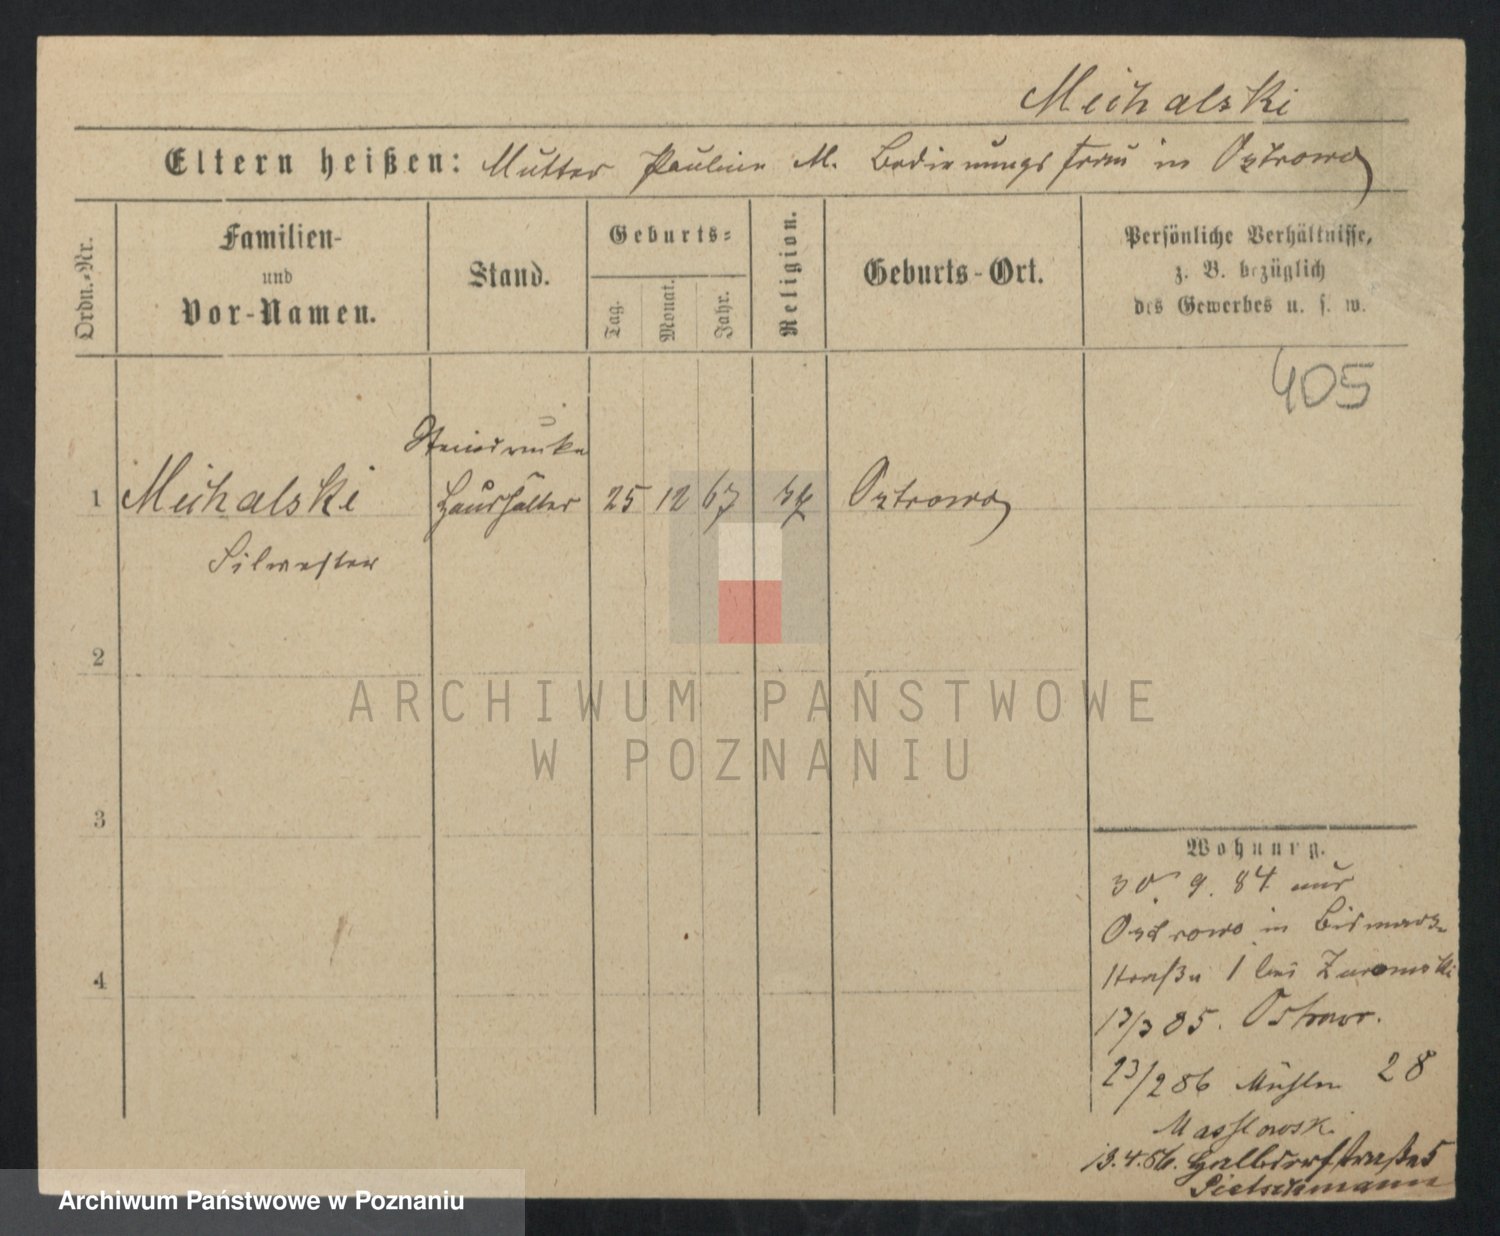 Michalski
Eltern heißen: Mutter Pauline M. Bedienungsfrau in Ostrowo
Ordn.-Nr.
Familien-
und
Vor-Namen.
Stand.
Geburts-
Tag.
Monat.
Jahr.
Religion.
Geburts-Ort.
Persönliche Verhältnisse,
z. B. bezüglich
des Gewerbes u. s. w.
405
Steindrucker
1 Michalski Haushälter 25 12 67 Ostrowo
Silwester
2
ARCHIWUM PAŃSTWOWE
W POZNANIU
3
Wohnung.
30. 9. 84 aus
Ostrowo in Bismarck-
straße 1 bei
13/3 85. Ostrow.
23/2 86 Mühlen 28
Masslowski
13.4.86. Halbdorfstraße 5
Pietschmann
4
Archiwum Państwowe w Poznaniu